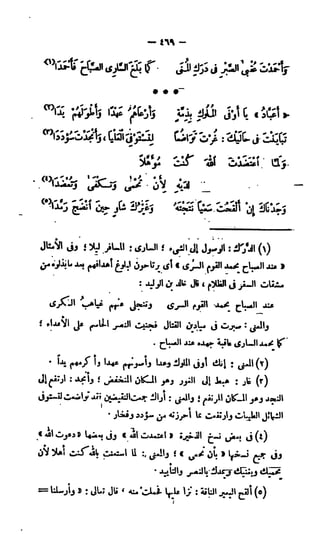 — ٤٦٩ —
وأحمدت عقبى الصبر فى درك المنى كما بلغ السارى الصباح فأحمدا(١)
* * *
« أعباد » يا أوفى الملوك بذمة وأرعاهم عهدا وأطولهم يدا(٢)
تباينت فى حاليك : غرت تواضعا لتستوفى العليا ، وأنجدت سؤددا(٣)
ولما اعتضدت الله كنت مؤهلا
لديه لأن تحمى وتكفى وتعضدا(٤)
وجدناك إن ألقحت سعيا نتجته وغيرك شار حين أنضج رمدا(٥)
(١) الدرك : الوصول إلى الشىء ؛ السارى : المسافر ليلا ؛ وفى الأمثال
« عند الصباح يحمد القوم السرى » أى يرتاحون لبلوغ أهدافهم بعد ما بذلوه من
مشقات السفر فى الظلام ، قال خالد بن الوليد :
عند الصباح يحمد القوم السرى وتنجلى عنهم غيابات الكرى
والمعنى : صبرت فى ميادين القتال فجنيت النصر الحاسم على الأعداء ؛
كما يحمد السارى عاقبة جهده عند الصباح .
(٢) المعنى : إنك أوفى الملوك وعدا وأصونهم عهدا وأكرمهم يدا .
(٣) غار : هبط إلى الغور وهو المكان المنخفض ؛ وأنجد : ارتفع إلى
النجد وهو المكان المرتفع ؛ والمعنى : أراك جمعت النقيضين فقد تواضعت لتستوفى
الشمائل الطيبات وارتفعت بما أحرزته من سؤدد وفخار .
(٤) فى بعض نسخ الذخيرة « اعتمدت الله » وفى بعضها « دعوت الله »
وفى جميع نسخها « بأن تحمى » ؛ والمعنى : لما استعنت بالله كنت أهلا لأن
يحميك ويثبتك ويمدك بالنصر والتأييد .
(٥) ألقح البعير الناقة : نزا عليها فحملت منه ، قال تعالى : « وأرسلنا =